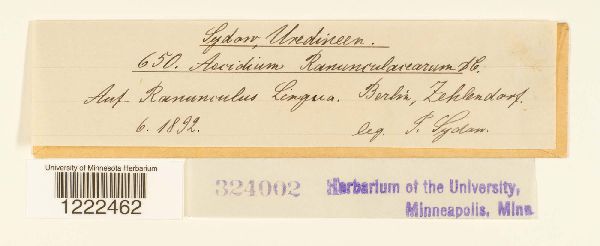 Sydow, Uredineen.
650. Aecidium Ranunculacearum DC.
Auf Ranunculus Lingua. Berlin, Zehlendorf.
6. 1892. leg. P. Sydow.
University of Minnesota Herbarium
1222462
324002 Herbarium of the University,
Minneapolis, Minn